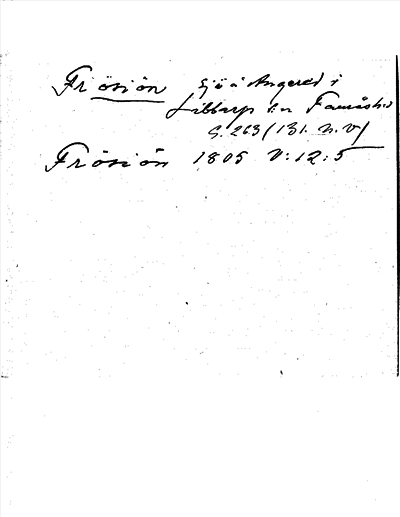 Frösiön sjö i Angered i
Libbarp s:n Famåshd
S. 263 (131. n.v)
Frösiön 1805 V:12:5